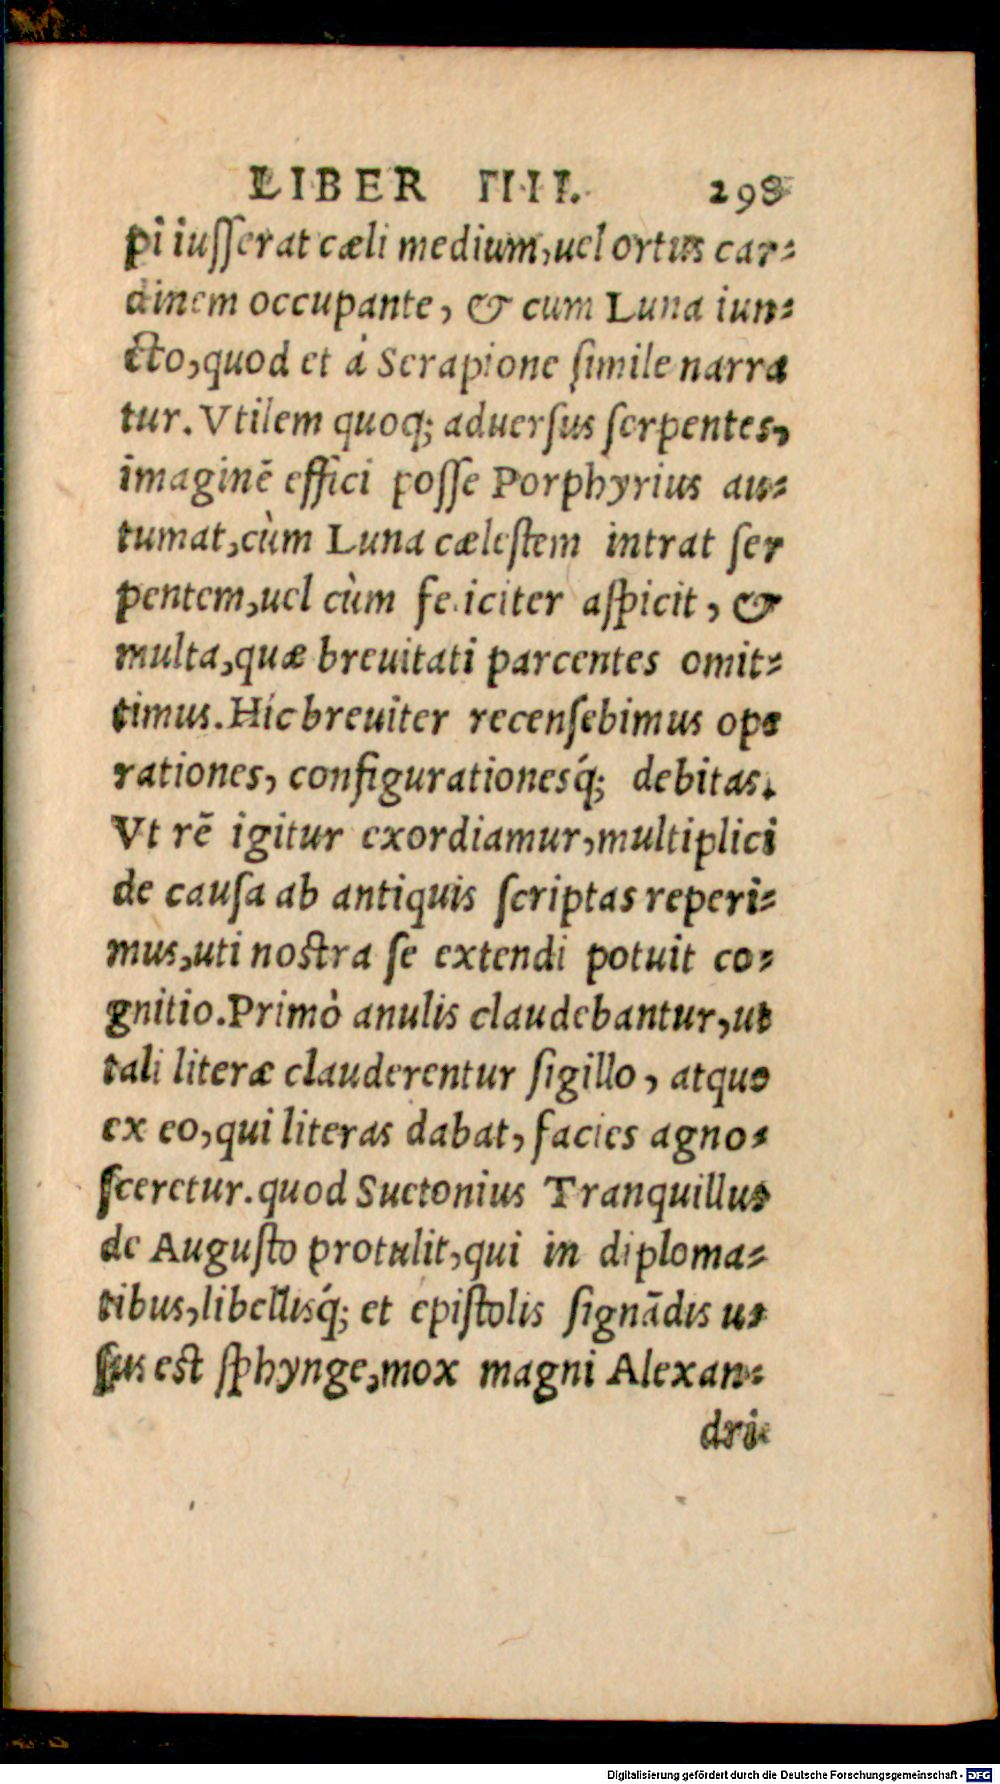 LIBER IIII. 298
pi iusserat cæli medium, uel ortus car-
dinem occupante, & cum Luna iun-
cto, quod et á Serapione simile narra
tur. Vtilem quoq; aduersus serpentes,
imaginē effici posse Porphyrius au-
tumat, cùm Luna cælestem intrat ser
pentem, uel cùm feliciter aspicit, &
multa, quæ breuitati parcentes omit-
timus. Hic breuiter recensebimus ope
rationes, configurationesq́; debitas.
Vt rē igitur exordiamur, multiplici
de causa ab antiquis scriptas reperi-
mus, uti nostra se extendi potuit co-
gnitio. Primò anulis claudebantur, ut
tali literæ clauderentur sigillo, atque
ex eo, qui literas dabat, facies agno-
sceretur. quod Suetonius Tranquillus
de Augusto protulit, qui in diploma-
tibus, libellisq́; et epistolis signādis u-
sus est sphynge, mox magni Alexan-
dri
Digitalisierung gefördert durch die Deutsche Forschungsgemeinschaft - DFG